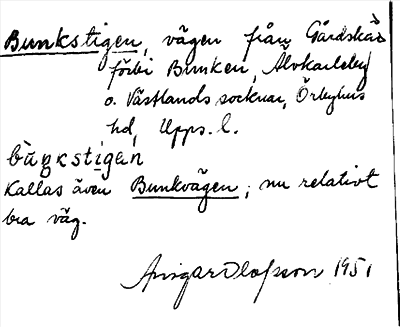 Bunkstigen, vägen från Gårdskär
förbi Bunken, Älvkarleby
o. Västlands socknar, Örbyhus
hd, Upps. l.
kallas även Bunkvägen; nu relativt
bra väg.
Ansgar Olofsson 1951